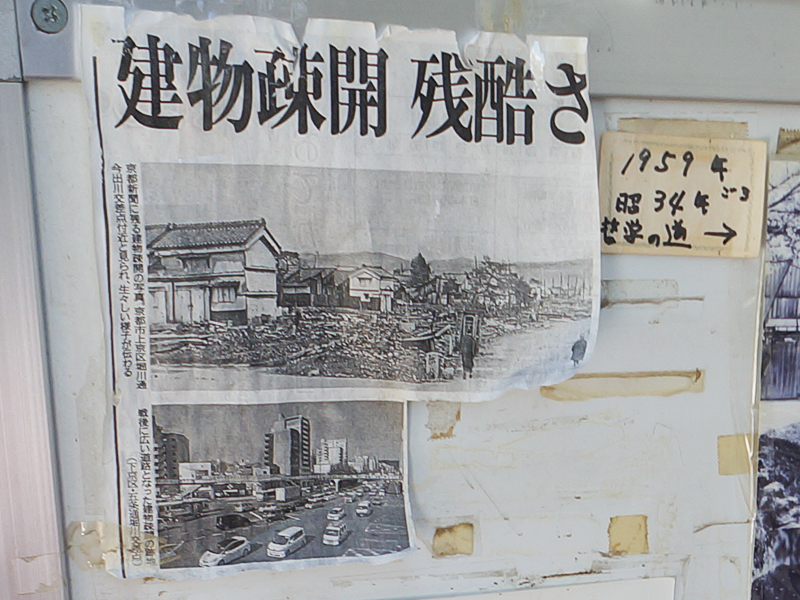 建物疎開 残酷さ
京都新聞に残る建物疎開の写真。京都市上京区堀川通
今出川交差点付近と見られ、生々しい様子が伝わる
戦後に広い道路となった建物疎開の跡地
(下京区・五条通堀川交差点)
1959年
昭34年ごろ
哲学の道→